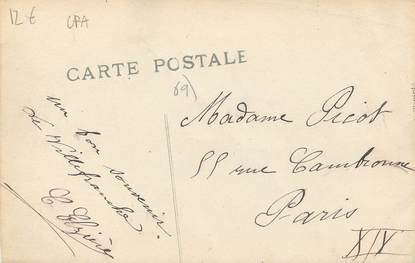 12 € CPA
CARTE POSTALE
69)
un bon souvenir
de Villefranche
Madame Picot
55 rue Cambronne
Paris
XIV